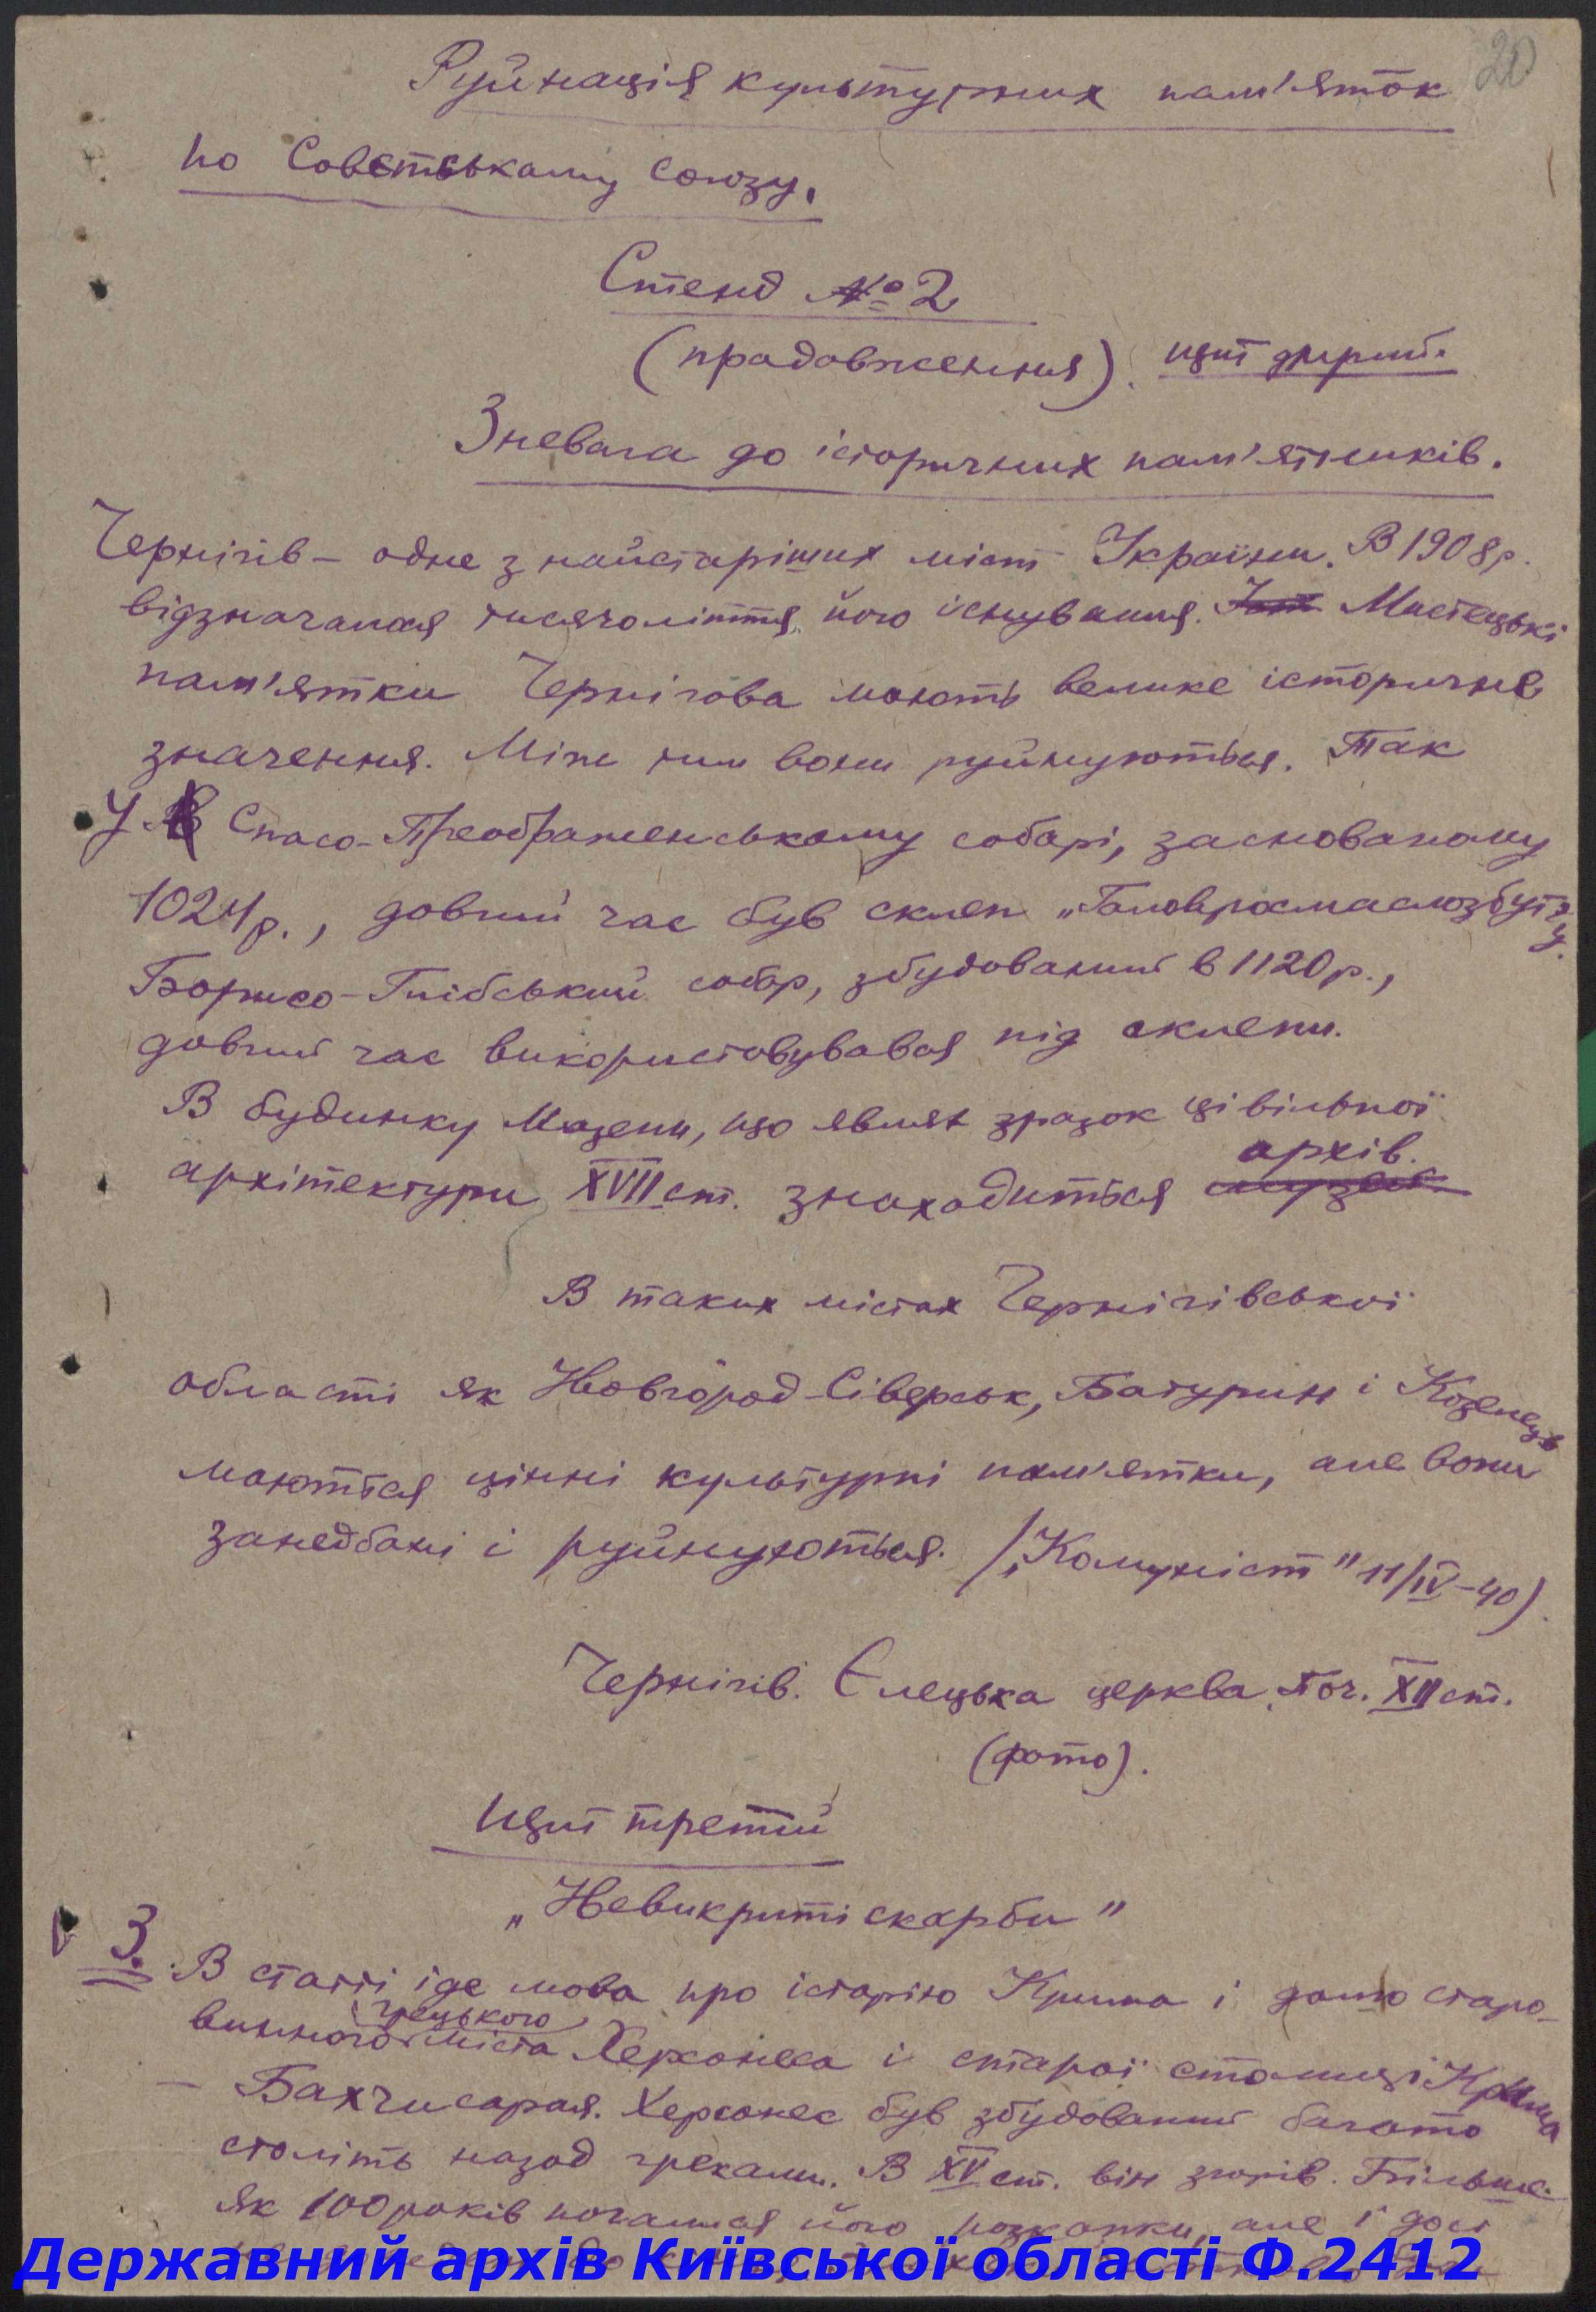 20
Руйнація культурних пам'яток
по Совєтському Союзу.
Стенд № 2
(продовження). щит другий.
Зневага до історичних пам'ятників.
Чернігів – одне з найстаріших міст України. В 1908 р.
відзначалося тисячоліття його існування. Мистецькі
пам'ятки Чернігова мають велике історичне
значення. Між тим вони руйнуються. Так
У Спасо-Преображенському соборі, заснованому
1024 р., довгий час був склеп „Головросмаслозбуту
Борисо-Глібський собор, збудований в 1120 р.,
довгий час використовувався під склепи.
В будинку Мазепи, що являє зразок цівільної
архів.
архітектури XVII ст. знаходиться музей.
В таких містах Чернігівської
області як Новгород-Сіверськ, Батурин і Козелець
маються цінні культурні пам'ятки, але вони
занедбані і руйнуються. /„Комуніст" 11/IV-40).
Чернігів. Єлецька церква. Поч. XII ст.
(фото).
Щит третій
„Невикриті скарби"
3. В статті іде мова про історію Крима і долю старо-
грецького
винного міста Херсонеса і старої столиці Крима
– Бахчисарая. Херсонес був збудований багато
століть назад греками. В XV ст. він згорів. Більше
як 100 років почалися його розкопки, але і досі
Державний архів Київської області Ф.2412